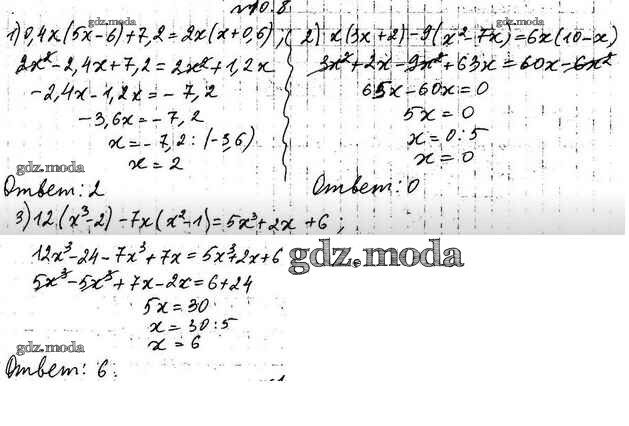 №10.8
gdz.moda gdz.moda
1) 0,4x(5x-6)+7,2=2x(x+0,6);
2x²-2,4x+7,2=2x²+1,2x
-2,4x-1,2x=-7,2
-3,6x=-7,2
x=-7,2:(-3,6)
x=2
gdz.moda
Ответ: 2
2) x(3x+2)-9(x²-7x)=6x(10-x)
3x²+2x-9x²+63x=60x-6x²
65x-60x=0
5x=0
x=0:5
x=0
Ответ: 0
3) 12(x³-2)-7x(x²-1)=5x³+2x+6;
12x³-24-7x³+7x=5x³+2x+6
gdz.moda
5x³-5x³+7x-2x=6+24
5x=30
x=30:5
x=6
gdz.moda
Ответ: 6.